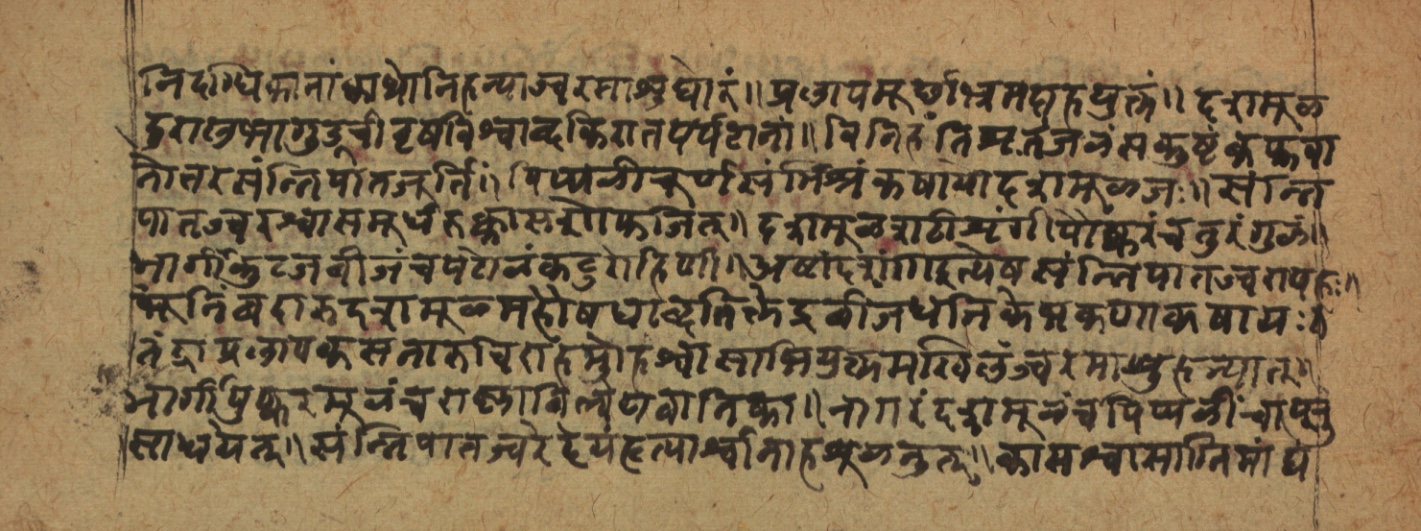 निदग्धिकानां क्वाथो निहन्याज्ज्वरमाशु घोरं॥ प्रलापमूर्छाभ्रममोहयुक्तं॥ दशमूल
दुरालभागुडूचीवृषविश्वाब्दकिरातपर्पटानां॥ विनिहंति शृतं जलं सकुष्टं कफवा
तोत्तरसंन्निपातजूर्तिं॥ पिप्पलीचूर्णसंमिश्रं कषायो दशमूलजः॥ संन्नि
पातज्वरश्वास कासरोगकजित्॥ दशमूलशठीशृंगी पौष्करं च दुरंगुलं॥
भार्गी कुटजबीजं च पटोलं कटुरोहिणी॥ अष्टादशांग इत्येष संन्निपातज्वरापहः॥
भूनिंबदारुदशमूलमहौषधाब्दतिक्तेंद्रबीजधनिकेभकणाकषायः॥
तंद्राप्रलापकसनारुचिदाहमोहश्वासादियुक्तमखिलं ज्वरमाशु हन्यात्॥
भार्गीपुष्करमूलं च रास्नाबिल्वं यवानिका॥ नागरं दशमूलं च पिप्पलीं चाप्सु
साधयेत्॥ संन्निपातज्वरे देयं हृत्पार्श्वानाहशूलनुत्॥ कासश्वासाग्निमांद्यं